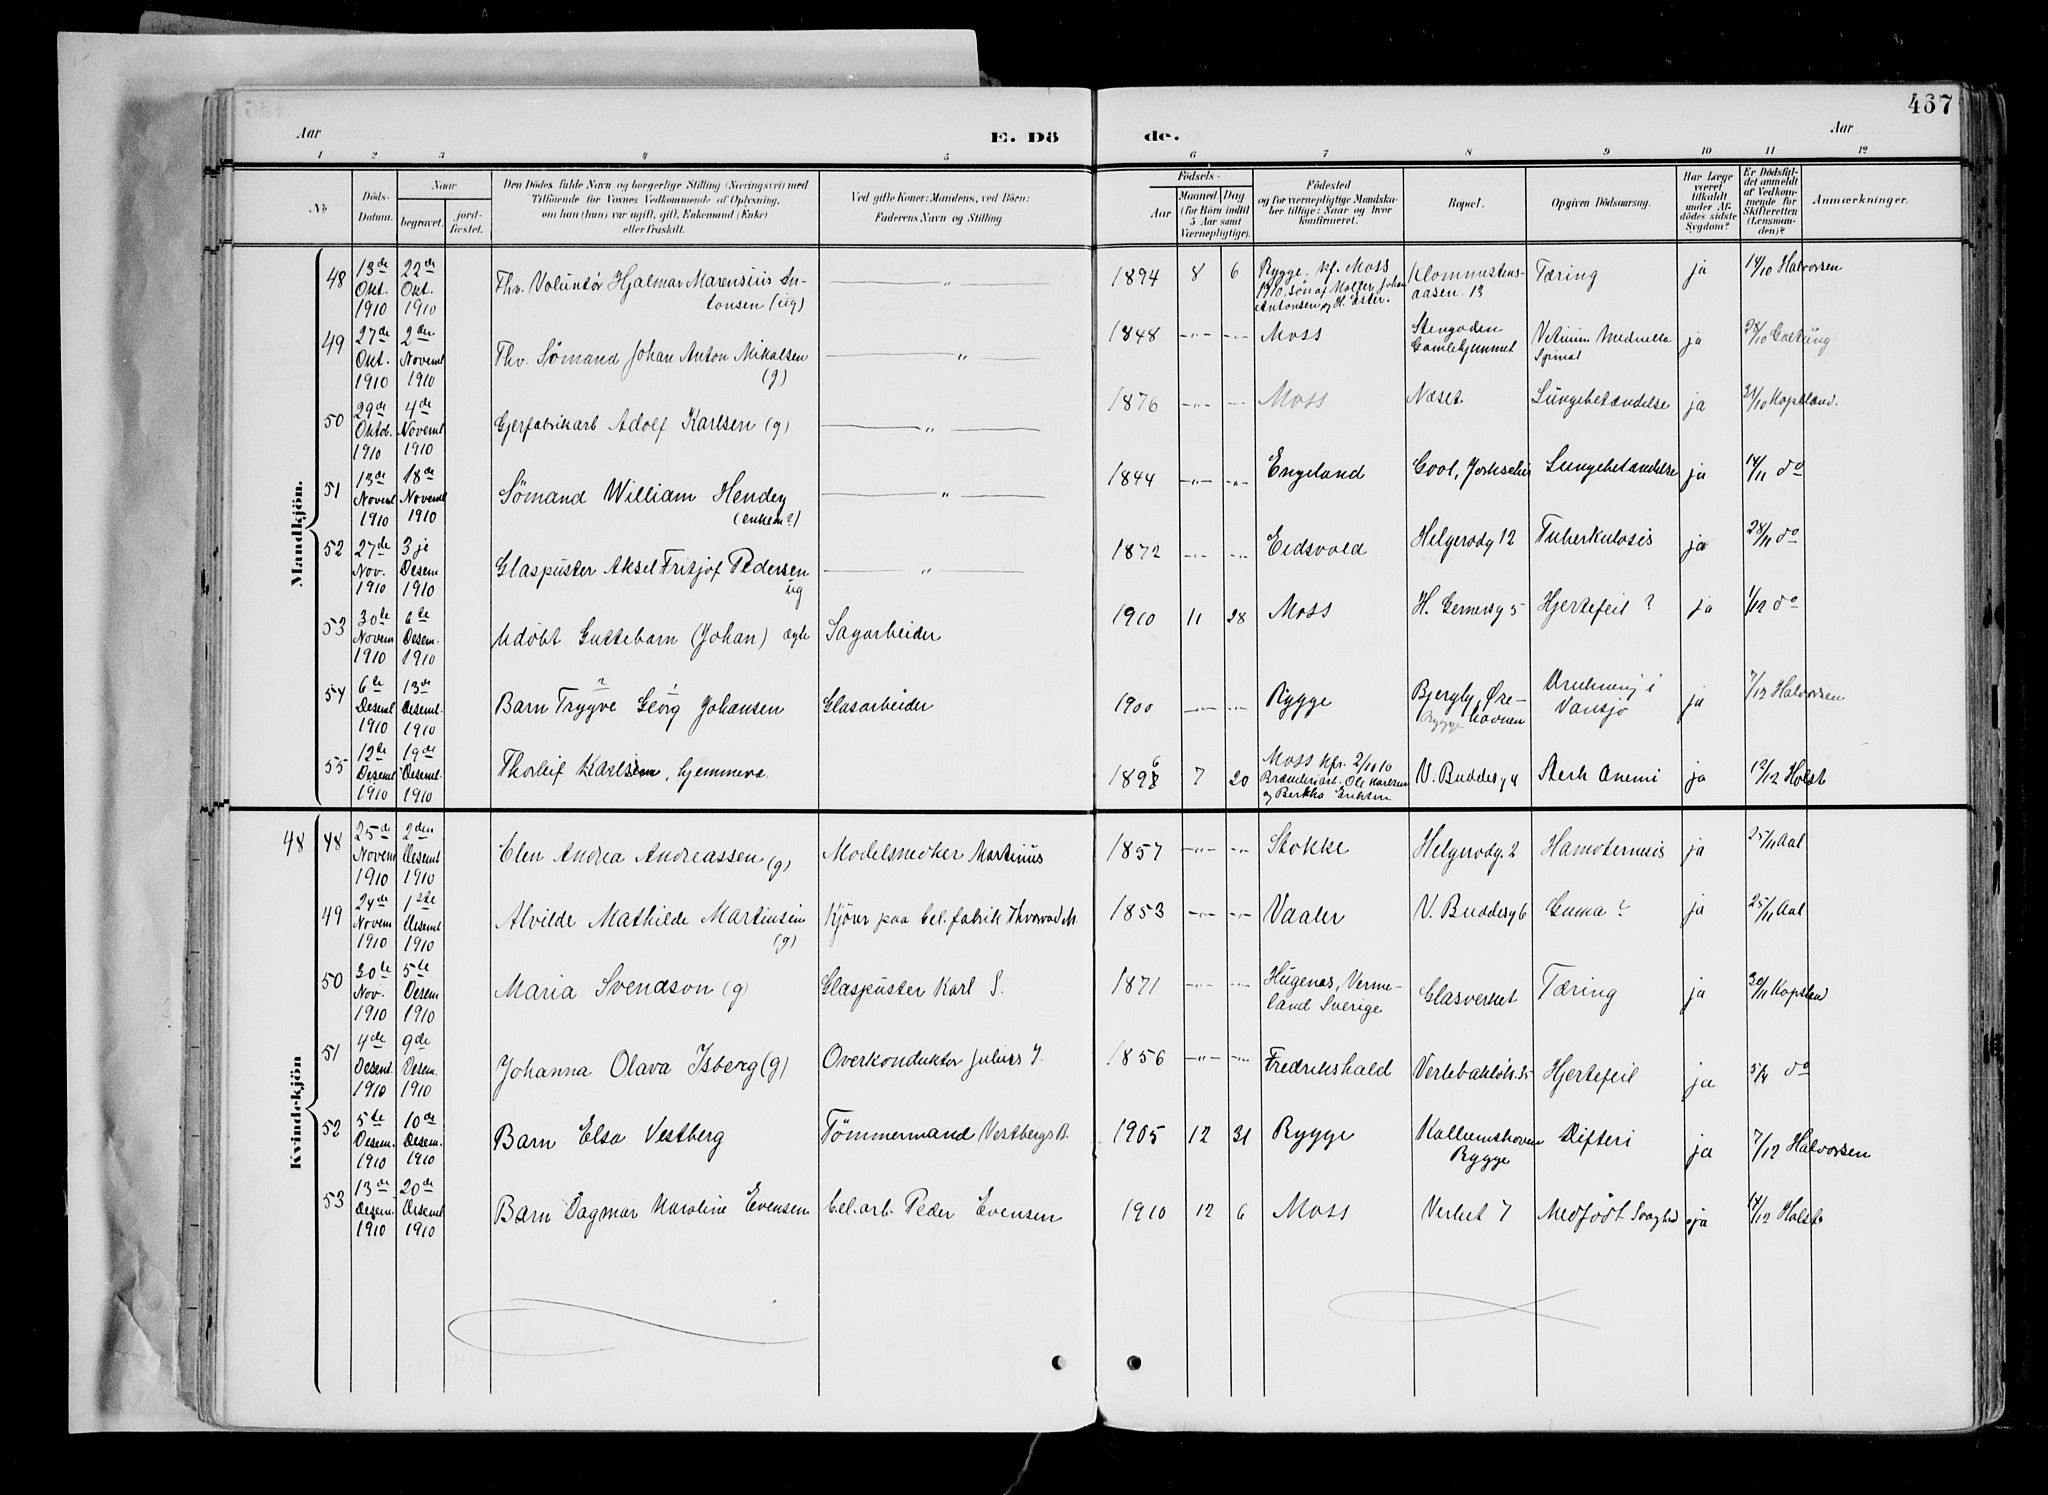 467
Aar
E. Dö
de.
Aar
1 2 3 4 5 6 7 8 9 10 11 12
No.
Döds-Datum.
Naar
begravet.
jord-fæstet.
Den Dödes fulde Navn og borgerlige Stilling (Næringsvei) med
Tilföiende for Voxnes Vedkommende af Oplysning,
om han (hun) var ugift, gift, Enkemand (Enke)
eller fraskilt.
Ved gifte Koner: Mandens, ved Börn:
Faderens Navn og Stilling.
Födsels-
Aar
Maaned Dag
(for Börn indtil
5 Aar samt
Værnepligtige).
Födested
og for værnepligtige Mandska-
ber tillige: Naar og hvor
konfirmeret.
Bopæl.
Opgiven Dödsaarsag.
Har Læge
været
tilkaldt
under Af-
dödes sidste
Sygdom?
Er Dödsfal-
det anmeldt
af Vedkom-
mende for
Skifteretten
(Lensman-
den)?
Anmærkninger.
Mandkjön.
48 13de Okt. 1910 22de Okt. 1910 Fhv. Voluntør Hjalmar Marensius An-
tonsen (ug) — " — 1894 8 6 Rygge. kf. Moss
1910. søn af Johan
Antonsen og H. Ester. aasen. 13 Tæring ja 14/10 Halvorsen
49 27de Okt. 1910 2den Novembr 1910 Fhv. Sømand Johan Anton Mikalsen
(g) — " — 1848 -"- -"- Moss Stengaden
Gamlehjemmet Medulla
Spinal ja 28/10
50 29de Oktob. 1910 4de Novembr 1910 Adolf Karlsen (g) — " — 1876 -"- -"- Moss Næset Lungebetændelse ja 31/10 Kopstad.
51 13de Novembr 1910 18de Novembr 1910 Sømand William Henden
(enkem?) — " — 1844 -"- -"- Engeland Gool, Lungebetændelse ja 14/11 do
52 27de Nov. 1910 3je Desem 1910 Glaspuster Aksel Fritjof Pedersen
ug — " — 1872 -"- -"- Eidsvold Helgerødg 12 Tuberkulosis ja 28/11 do
53 30te Novem 1910 6te Desem. 1910 Udøbt Guttebarn (Johan) ægte Sagarbeider 1910 11 28 Moss H. Gernersg 5 Hjertefeil ? ja 1/12 do
54 6te Desembr 1910 13de Desembr. 1910 Barn Trygve Georg Johansen Glasarbeider 1900 -"- -"- Rygge Bjergly, Øre-
Rygge havnen Drukning i
Vansjø ja 7/12 Halvorsen
55 12te Desembr 1910 19de Desembr. 1910 Thorleif Karlsen, hjemmevæ. 1896 7 20 Moss kfr. 2/10 10
Brænderiarb. Ole Karlsen
og Bertha Eriksen V. Buddesg 4 Sterk Anemi ja 13/12 Holst
Kvindekjön
48 48 25de Novem 1910 2den Desembr 1910 Elen Andrea Andreassen (g) Modelsnedker Martinius 1857 -"- -"- Stokke Helgerødg. 2 Hamoternesis ja 25/11 Aal
49 24de Novem 1910 1ste Desembr 1910 Alvilde Mathilde Martinsen
(g) Kjører paa cel.fabrik Thorvald M. 1853 -"- -"- Vaaler V. Buddesg 6 Guma ? ja 25/11 Aal
50 30te Nov. 1910 5te Desem 1910 Maria Svendson (g) Glaspuster Karl S. 1871 -"- -"- Hügenäs, Verme-
land Sverige Glasverket Tæring ja 30/11 Kopstad
51 4de Desembr. 1910 9de Desem. 1910 Johanna Olava Isberg (g) Overkonduktør Julius I. 1856 -"- -"- Fredrikshald Hjertefeil ja do
52 5te Desem. 1910 10de Desem. 1910 Barn Elsa Vestberg Tømmermand Vestbergs B. 1905 12 31 Rygge
Rygge Difteri ja 7/12 Halvorsen
53 13de Desem. 1910 20de Desembr 1910 Barn Dagmar Karoline Evensen cel.arb. Peder Evensen 1910 12 6 Moss Verket 7 Medfødt Svaghed ja 14/12 Holst